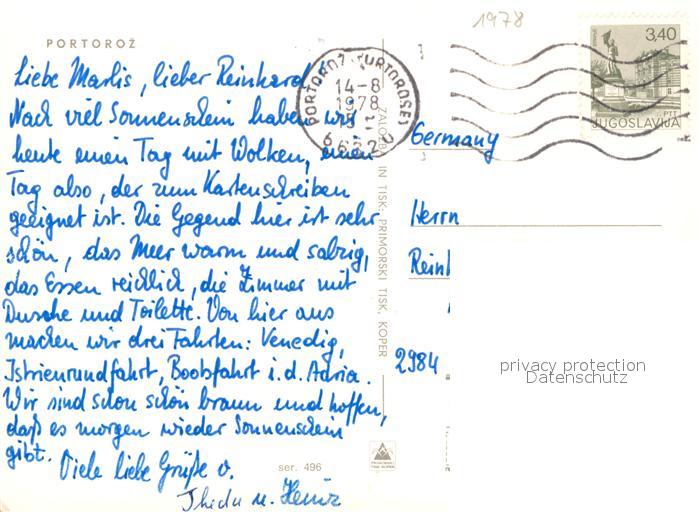 1978
PORTOROŽ
3,40
PTT
JUGOSLAVIJA
PORTOROŽ (PORTOROSE)
14-8
1978
Liebe Marlis, lieber Reinhard
Nach viel Sonnenschein haben wir
heute einen Tag mit Wolken, einen
Tag also, der zum Kartenschreiben
geeignet ist. Die Gegend hier ist sehr
schön, das Meer warm und salzig,
das Essen reichlich, die Zimmer mit
Dusche und Toilette. Von hier aus
machen wir drei Fahrten: Venedig,
Istrienrundfahrt, Bootsfahrt i. d. Adria.
Wir sind schon schön braun und hoffen,
daß es morgen wieder Sonnenschein
gibt. Viele liebe Grüße v.
u. Heinz
ZALOŽBA IN TISK: PRIMORSKI TISK, KOPER
ser. 496
Germany
Herrn
Rein
2984
privacy protection
Datenschutz